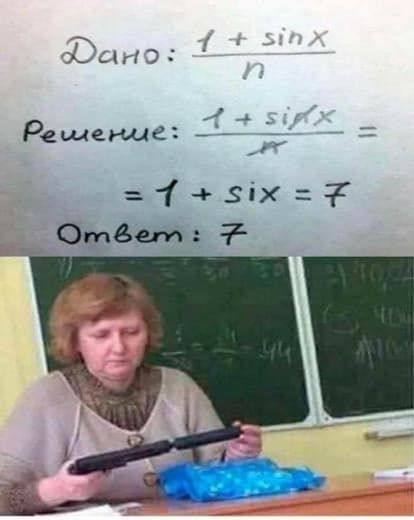 Дано: 1 + sinx
n
Решение: 1 + sinx =
n
= 1 + six = 7
Ответ: 7